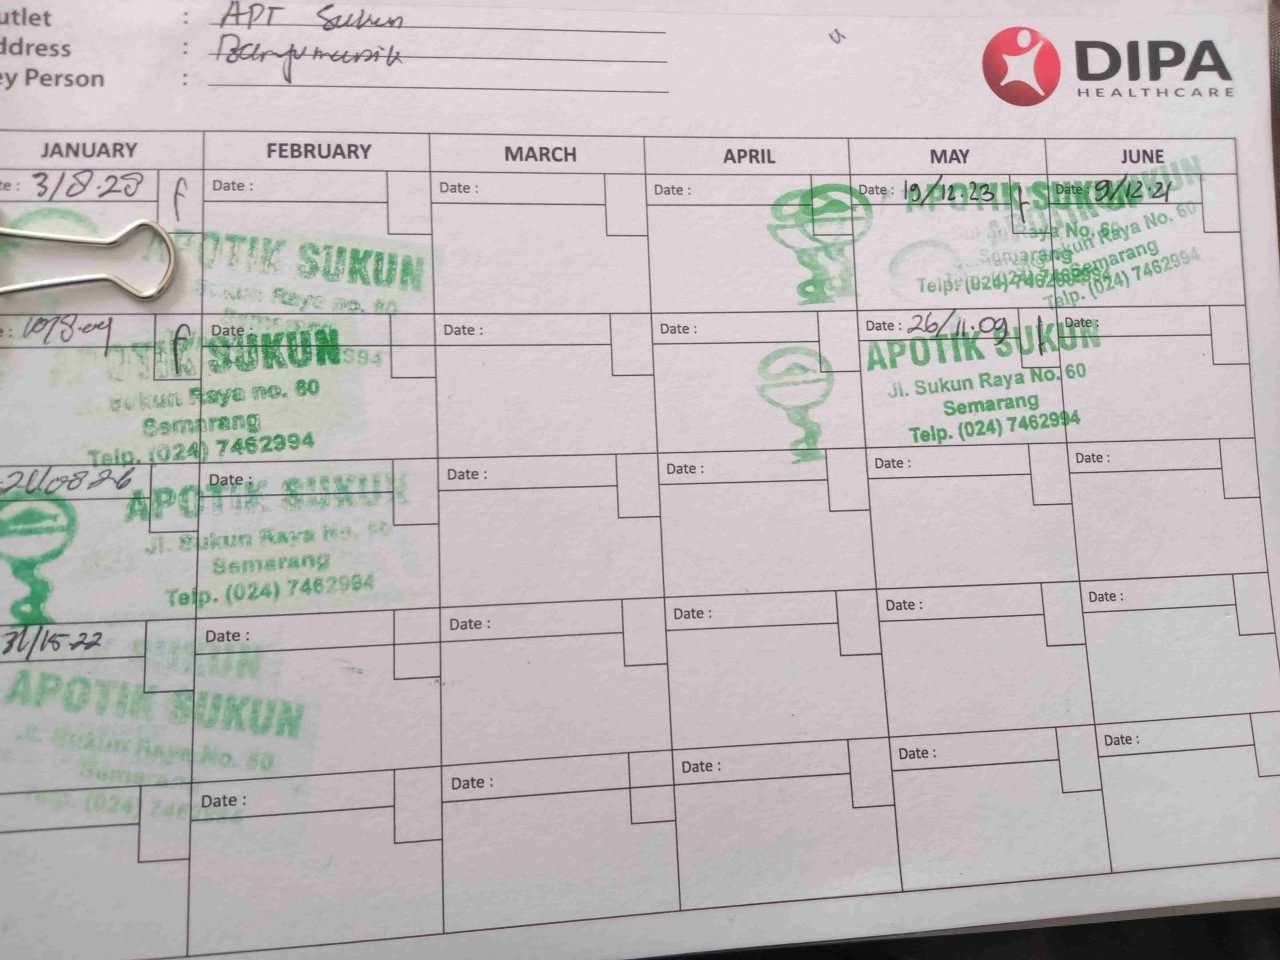 utlet : APT Sukun
ddress :
ey Person :
DIPA
HEALTHCARE
JANUARY FEBRUARY MARCH APRIL MAY JUNE
te : 3/8.23 Date : Date : Date : Date : 19/12.23 Date : 9/12.21
APOTIK SUKUN
Sukun Raya no. 60
APOTIK SUKUN
Raya No. 60
Semarang
Telp. (024)
Sukun Raya No. 60
Semarang
Telp. (024) 7462994
e : Date : Date : Date : Date : 26/11.09 Date :
APOTIK SUKUN
Sukun Raya no. 60
Semarang
Telp. (024) 7462994
APOTIK SUKUN
Jl. Sukun Raya No. 60
Semarang
Telp. (024) 7462994
Date : Date : Date : Date : Date :
APOTIK SUKUN
Jl. Sukun Raya No. 60
Semarang
Telp. (024) 7462994
31/15.22 Date : Date : Date : Date : Date :
SUKUN
APOTIK SUKUN
Jl. Sukun Raya No. 60
Semarang
Telp. (024)
Date : Date : Date : Date : Date :